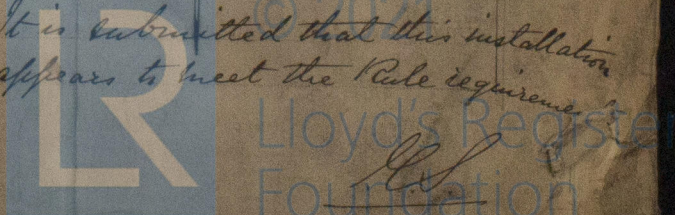 © 2021
It is submitted that this installation
appears to meet the Rule requirements
LR
Lloyd's Register
Foundation